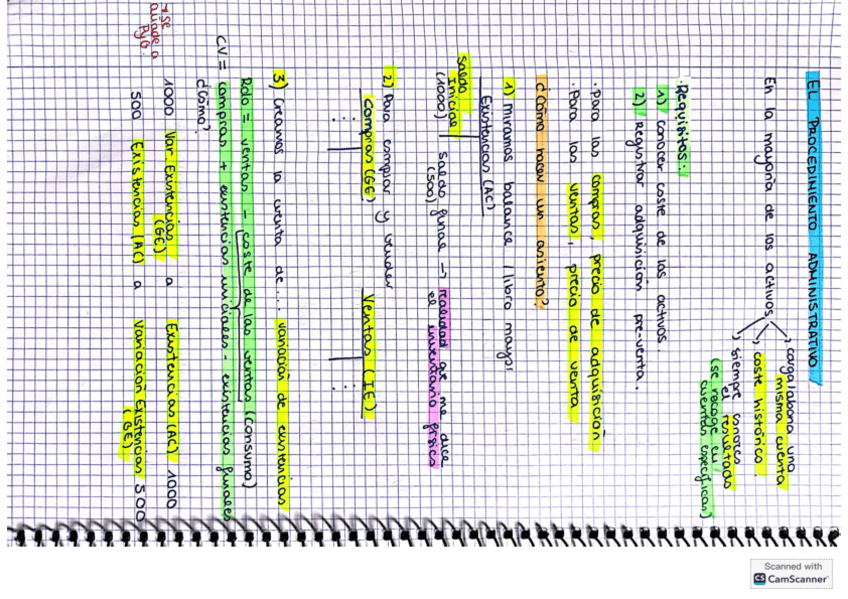 EL PROCEDIMIENTO ADMINISTRATIVO
En la mayoría de los activos
carga/abona una
misma cuenta
coste histórico
siempre conozco
el resultado
(se recoge en
cuentas específicas)
·Requisitos:
1) conocer coste de los activos.
2) registrar adquisición pre-venta.
·Para las compras, precio de adquisición
·Para los ventas, precio de venta
¿cómo hacer un asiento?
1) miramos balance / libro mayor
Existencias (AC)
Saldo
Inicial
(1000)
Saldo final → realidad que me dice
(500)
el inventario físico
2) Para comprar y vender
Compras (GE)
Ventas (IE)
3) Creamos la cuenta de... variación de existencias
Rdo = ventas - coste de las ventas (consumo)
CV = compras + existencias iniciales - existencias finales
¿cómo?
1000 Var. Existencias a Existencias (AC) 1000
(GE)
500 Existencias (AC) a Variación Existencias 500
(GE)
→ se
añade a
PyG.
Scanned with
CS CamScanner